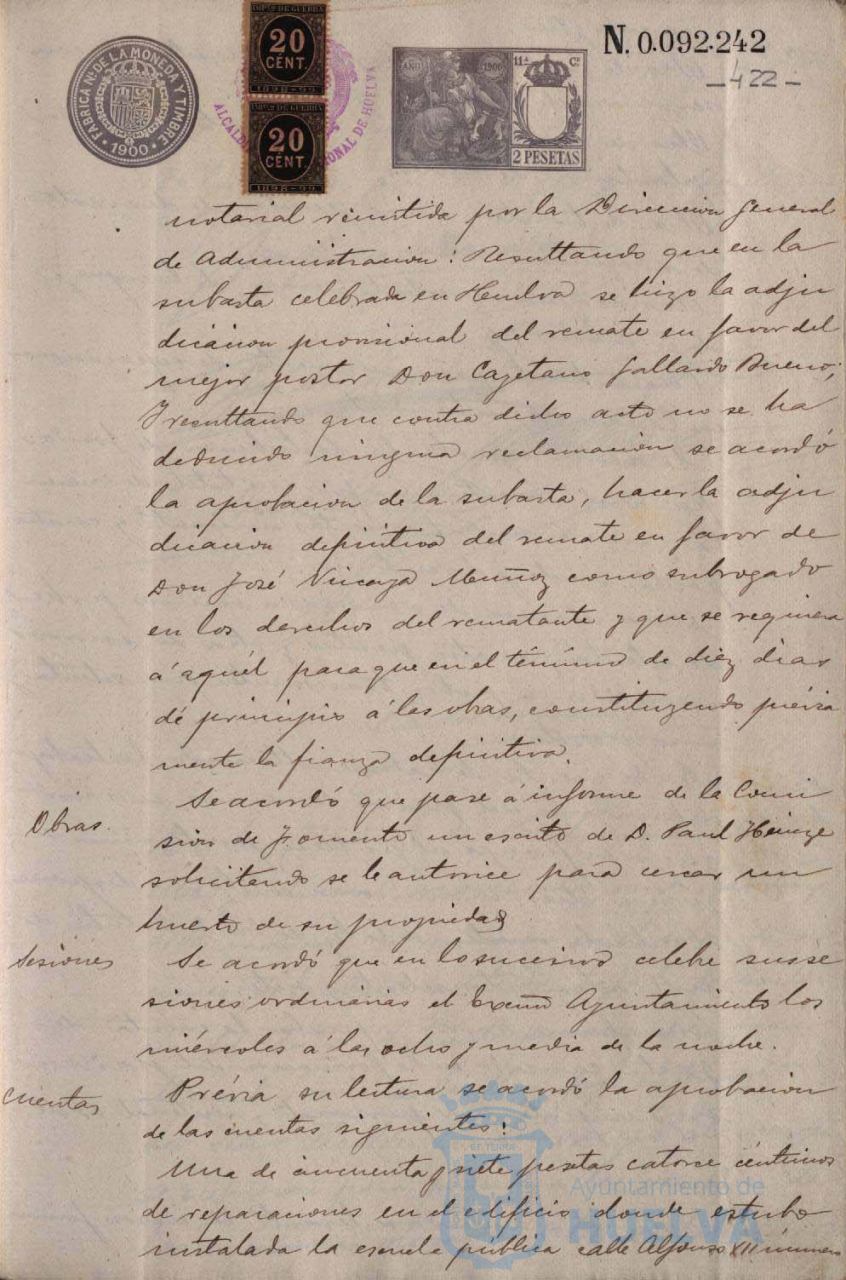 N. 0.092.242
-422-
FABRICA NL. DE LA MONEDA Y TIMBRE
1900
IMPTO. DE GUERRA
20
CENT.
1898-99
20
CENT.
1898-99
ALCALDIA CONSTITUCIONAL DE HUELVA
AÑO 1900
11ª Cª
2 PESETAS
notarial remitida por la Direccion General
de Administracion: Resultando que en la
subasta celebrada en Huelva se hizo la adju
dicacion provisional del remate en favor del
mejor postor Don Cayetano Gallardo Bueno;
Y resultando que contra dicho acto no se ha
deducido ninguna reclamacion se acordó
la aprobacion de la subasta, hacer la adju
dicacion definitiva del remate en favor de
Don José Vizcaya Muñoz como subrogado
en los derechos del rematante y que se requiera
á aquél para que en el término de diez dias
dé principio á las obras, constituyendo prévia
mente la fianza definitiva.
Obras.
Se acordó que pase á informe de la Comi
sion de Fomento un escrito de D. Paul
solicitando se le autorice para cercar un
huerto de su propiedad
Sesiones
Se acordó que en lo sucesivo celebre sus se
siones ordinarias el Excmo Ayuntamiento los
miércoles á las ocho y media de la noche.
Cuentas
Prévia su lectura se acordó la aprobacion
de las cuentas siguientes:
Una de cincuenta y siete pesetas catorce céntimos
de reparaciones en el edificio donde estubo
instalada la escuela pública calle Alfonso XII número
Ayuntamiento de
HUELVA